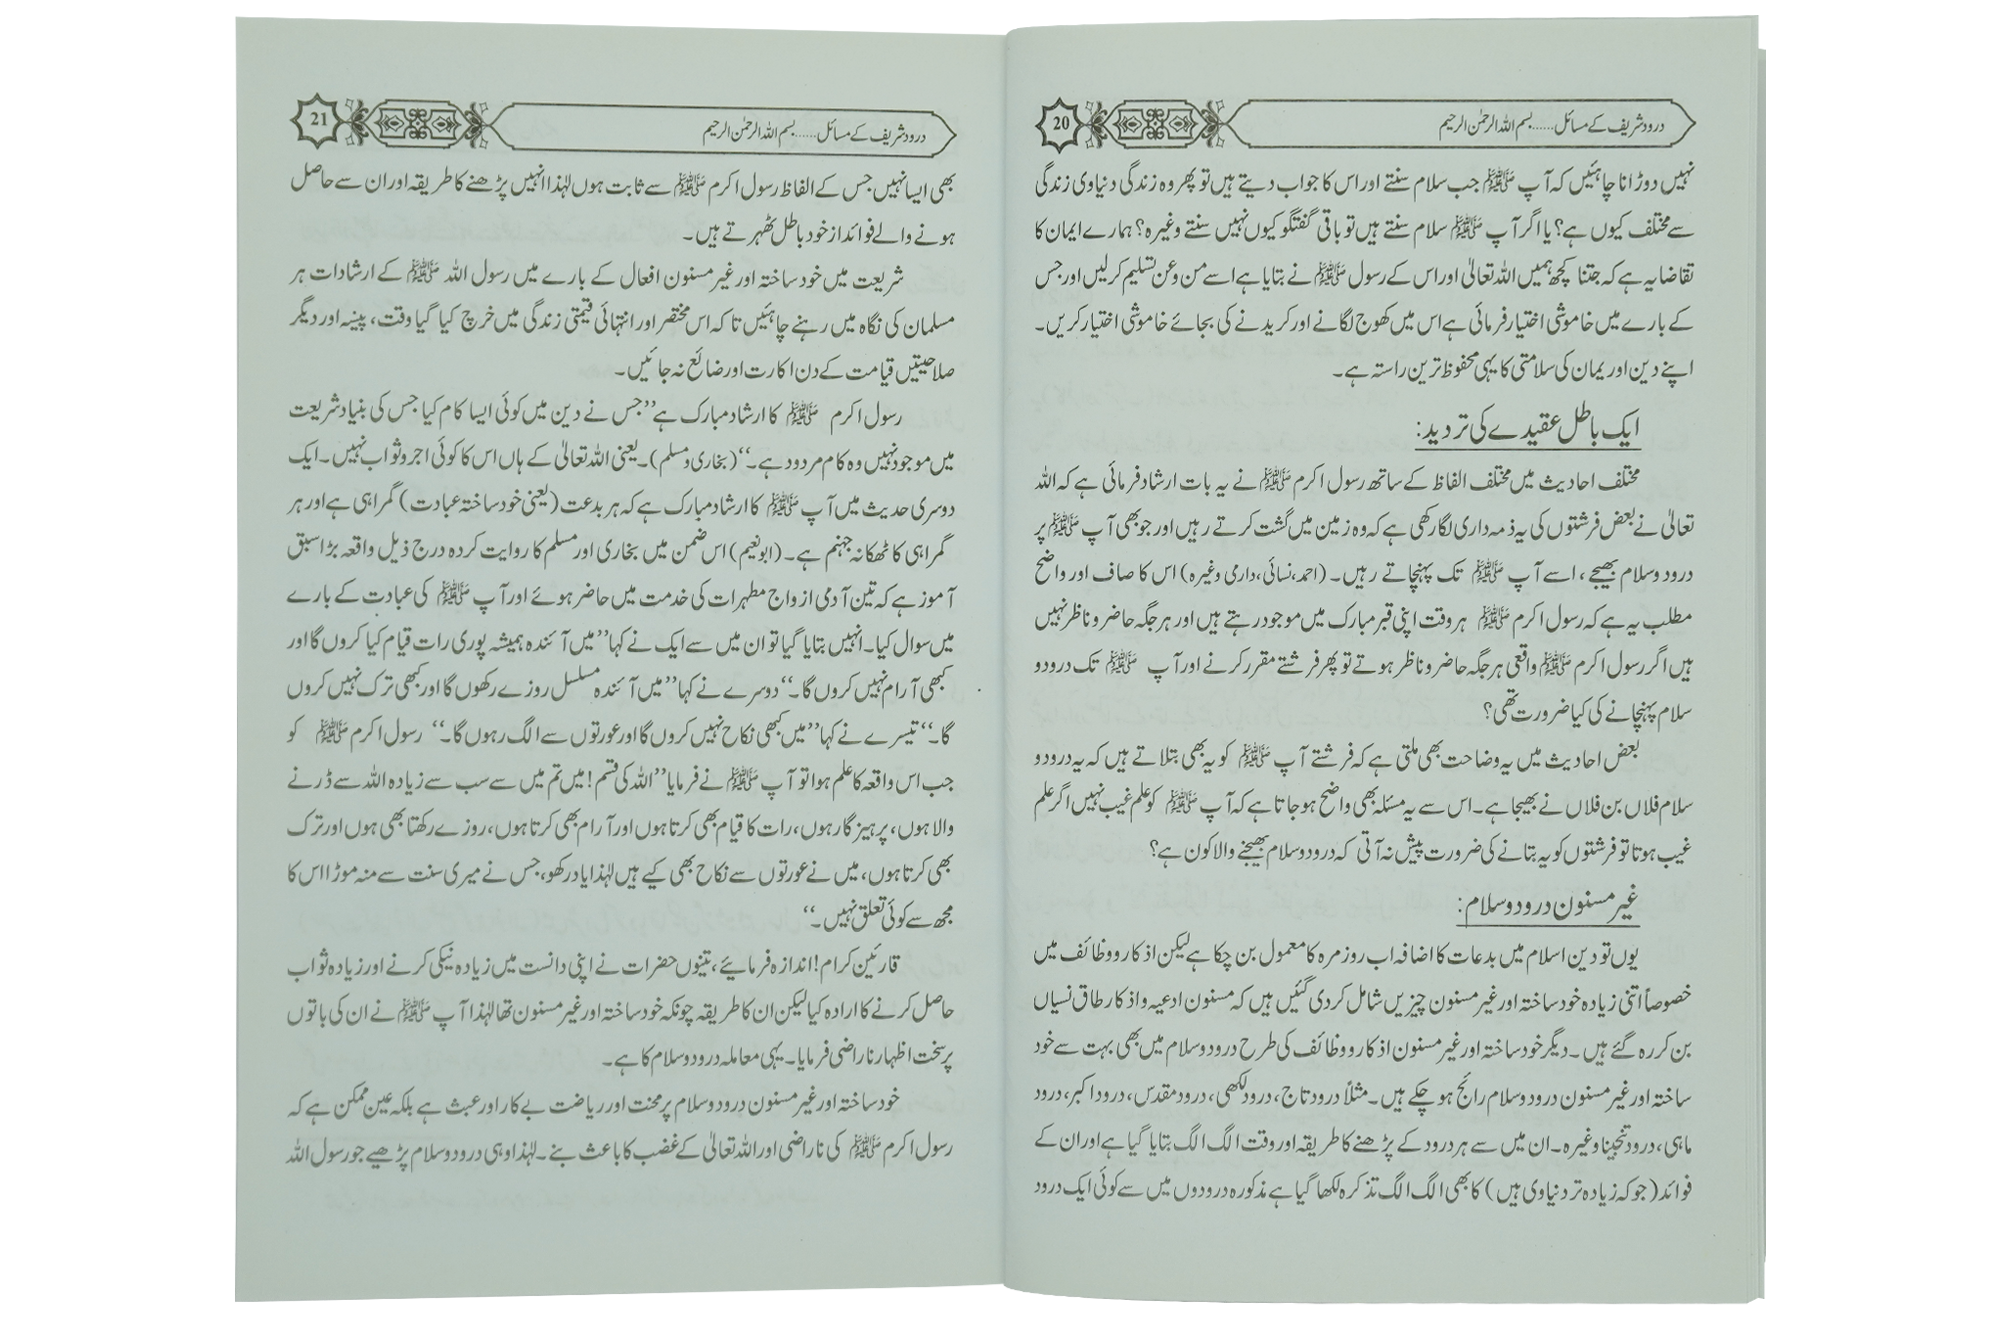 درود شریف کے مسائل......بسم اللہ الرحمٰن الرحیم
20
نہیں دوڑانا چاہئیں کہ آپ ﷺ جب سلام سنتے اور اس کا جواب دیتے ہیں تو پھر وہ زندگی دنیاوی زندگی
سے مختلف کیوں ہے؟ یا اگر آپ ﷺ سلام سنتے ہیں تو باقی گفتگو کیوں نہیں سنتے وغیرہ؟ ہمارے ایمان کا
تقاضا یہ ہے کہ جتنا کچھ ہمیں اللہ تعالیٰ اور اس کے رسول ﷺ نے بتایا ہے اسے من وعن تسلیم کرلیں اور جس
کے بارے میں خاموشی اختیار فرمائی ہے اس میں کھوج لگانے اور کریدنے کی بجائے خاموشی اختیار کریں۔
اپنے دین اور یمان کی سلامتی کا یہی محفوظ ترین راستہ ہے۔
ایک باطل عقیدے کی تردید:
مختلف احادیث میں مختلف الفاظ کے ساتھ رسول اکرم ﷺ نے یہ بات ارشاد فرمائی ہے کہ اللہ
تعالیٰ نے بعض فرشتوں کی یہ ذمہ داری لگا رکھی ہے کہ وہ زمین میں گشت کرتے رہیں اور جو بھی آپ ﷺ پر
درود وسلام بھیجے، اسے آپ ﷺ تک پہنچاتے رہیں۔ (احمد، نسائی، دارمی وغیرہ) اس کا صاف اور واضح
مطلب یہ ہے کہ رسول اکرم ﷺ ہر وقت اپنی قبر مبارک میں موجود رہتے ہیں اور ہر جگہ حاضر وناظر نہیں
ہیں اگر رسول اکرم ﷺ واقعی ہر جگہ حاضر وناظر ہوتے تو پھر فرشتے مقرر کرنے اور آپ ﷺ تک درود و
سلام پہنچانے کی کیا ضرورت تھی؟
بعض احادیث میں یہ وضاحت بھی ملتی ہے کہ فرشتے آپ ﷺ کو یہ بھی بتلاتے ہیں کہ یہ درود و
سلام فلاں بن فلاں نے بھیجا ہے۔ اس سے یہ مسئلہ بھی واضح ہوجاتا ہے کہ آپ ﷺ کو علم غیب نہیں اگر علم
غیب ہوتا تو فرشتوں کو یہ بتانے کی ضرورت پیش نہ آتی کہ درود وسلام بھیجنے والا کون ہے؟
غیر مسنون درود وسلام:
یوں تو دین اسلام میں بدعات کا اضافہ اب روز مرہ کا معمول بن چکا ہے لیکن اذکار ووظائف میں
خصوصاً اتنی زیادہ خود ساختہ اور غیر مسنون چیزیں شامل کردی گئیں ہیں کہ مسنون ادعیہ واذکار طاق نسیاں
بن کر رہ گئے ہیں۔ دیگر خود ساختہ اور غیر مسنون اذکار ووظائف کی طرح درود وسلام میں بھی بہت سے خود
ساختہ اور غیر مسنون درود وسلام رائج ہوچکے ہیں۔ مثلاً درود تاج، درود لکھی، درود مقدس، درود اکبر، درود
ماہی، درود تنجینا وغیرہ۔ ان میں سے ہر درود کے پڑھنے کا طریقہ اور وقت الگ الگ بتایا گیا ہے اور ان کے
فوائد (جو کہ زیادہ تر دنیاوی ہیں) کا بھی الگ الگ تذکرہ لکھا گیا ہے مذکورہ درودوں میں سے کوئی ایک درود
درود شریف کے مسائل......بسم اللہ الرحمٰن الرحیم
21
بھی ایسا نہیں جس کے الفاظ رسول اکرم ﷺ سے ثابت ہوں لہٰذا انہیں پڑھنے کا طریقہ اور ان سے حاصل
ہونے والے فوائد از خود باطل ٹھہرتے ہیں۔
شریعت میں خود ساختہ اور غیر مسنون افعال کے بارے میں رسول اللہ ﷺ کے ارشادات ہر
مسلمان کی نگاہ میں رہنے چاہئیں تاکہ اس مختصر اور انتہائی قیمتی زندگی میں خرچ کیا گیا وقت، پیسہ اور دیگر
صلاحیتیں قیامت کے دن اکارت اور ضائع نہ جائیں۔
رسول اکرم ﷺ کا ارشاد مبارک ہے ’’جس نے دین میں کوئی ایسا کام کیا جس کی بنیاد شریعت
میں موجود نہیں وہ کام مردود ہے۔‘‘ (بخاری ومسلم)۔ یعنی اللہ تعالیٰ کے ہاں اس کا کوئی اجر وثواب نہیں۔ ایک
دوسری حدیث میں آپ ﷺ کا ارشاد مبارک ہے کہ ہر بدعت (یعنی خود ساختہ عبادت) گمراہی ہے اور ہر
گمراہی کا ٹھکانہ جہنم ہے۔ (ابونعیم) اس ضمن میں بخاری اور مسلم کا روایت کردہ درج ذیل واقعہ بڑا سبق
آموز ہے کہ تین آدمی ازواج مطہرات کی خدمت میں حاضر ہوئے اور آپ ﷺ کی عبادت کے بارے
میں سوال کیا۔ انہیں بتایا گیا تو ان میں سے ایک نے کہا ’’میں آئندہ ہمیشہ پوری رات قیام کیا کروں گا اور
کبھی آرام نہیں کروں گا۔‘‘ دوسرے نے کہا ’’میں آئندہ مسلسل روزے رکھوں گا اور کبھی ترک نہیں کروں
گا۔‘‘ تیسرے نے کہا ’’میں کبھی نکاح نہیں کروں گا اور عورتوں سے الگ رہوں گا۔‘‘ رسول اکرم ﷺ کو
جب اس واقعہ کا علم ہوا تو آپ ﷺ نے فرمایا ’’اللہ کی قسم! میں تم میں سے سب سے زیادہ اللہ سے ڈرنے
والا ہوں، پرہیزگار ہوں، رات کا قیام بھی کرتا ہوں اور آرام بھی کرتا ہوں، روزے رکھتا بھی ہوں اور ترک
بھی کرتا ہوں، میں نے عورتوں سے نکاح بھی کیے ہیں لہٰذا یاد رکھو، جس نے میری سنت سے منہ موڑا اس کا
مجھ سے کوئی تعلق نہیں۔‘‘
قارئین کرام! اندازہ فرمائیے، تینوں حضرات نے اپنی دانست میں زیادہ نیکی کرنے اور زیادہ ثواب
حاصل کرنے کا ارادہ کیا لیکن ان کا طریقہ چونکہ خود ساختہ اور غیر مسنون تھا لہٰذا آپ ﷺ نے ان کی باتوں
پر سخت اظہار ناراضی فرمایا۔ یہی معاملہ درود وسلام کا ہے۔
خود ساختہ اور غیر مسنون درود وسلام پر محنت اور ریاضت بے کار اور عبث ہے بلکہ عین ممکن ہے کہ
رسول اکرم ﷺ کی ناراضی اور اللہ تعالیٰ کے غضب کا باعث بنے۔ لہٰذا وہی درود وسلام پڑھیے جو رسول اللہ